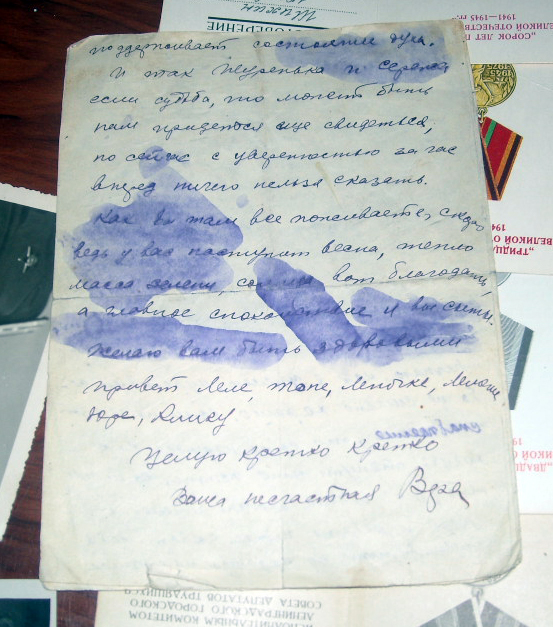 поддерживает состояние духа.
И так Шуренька и Сережа
если судьба, то может быть
нам придется еще свидеться,
но сейчас с уверенностью за час
вперед ничего нельзя сказать.
Как вы там все поживаете, скоро
ведь у вас наступит весна, тепло
масса зелени, вот благодать,
а главное спокойствие и вы сыты.
Желаю вам быть здоровыми
привет Леле, Тоне, Леночке,
Юре, Алику
Целую крепко крепко
Ваша несчастная Вера
УДОСТОВЕРЕНИЕ
"СОРОК ЛЕТ
1941-1945 гг.
ВЕЛИКОЙ
"ТРИДЦА
"ДВАДЦ
ИСПОЛНИТЕЛЬНЫМ КОМИТЕТОМ
ЛЕНИНГРАДСКОГО ГОРОДСКОГО
СОВЕТА ДЕПУТАТОВ ТРУДЯЩИХСЯ